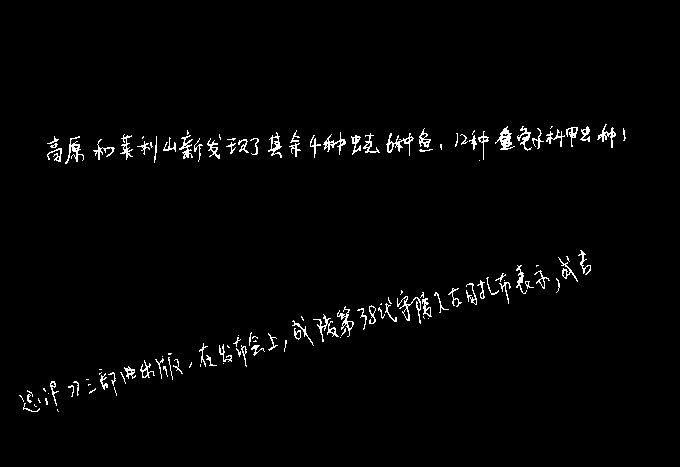 高原和莱利山新发现了其余4种蛙、6种鱼、12种鱼和甲虫种!
思汗》三部曲出版。在发布会上,成陵第38代守陵人古日扎布表示,成吉